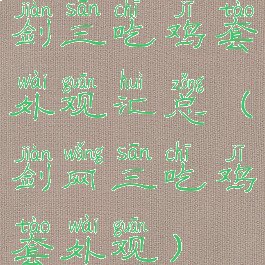 jiàn sān chī jī tào
剑三吃鸡套
wài guān huì zǒng
外观汇总（
jiàn wǎng sān chī jī
剑网三吃鸡
tào wài guān
套外观）